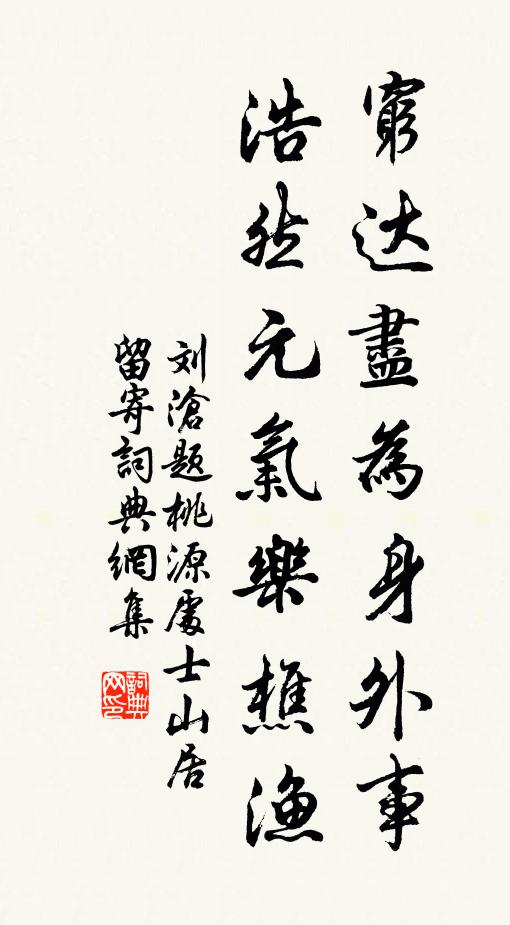 窮达盡為身外事
浩然元氣樂樵漁
刘滄題桃源處士山居
留寄詞典網集
詞典网印